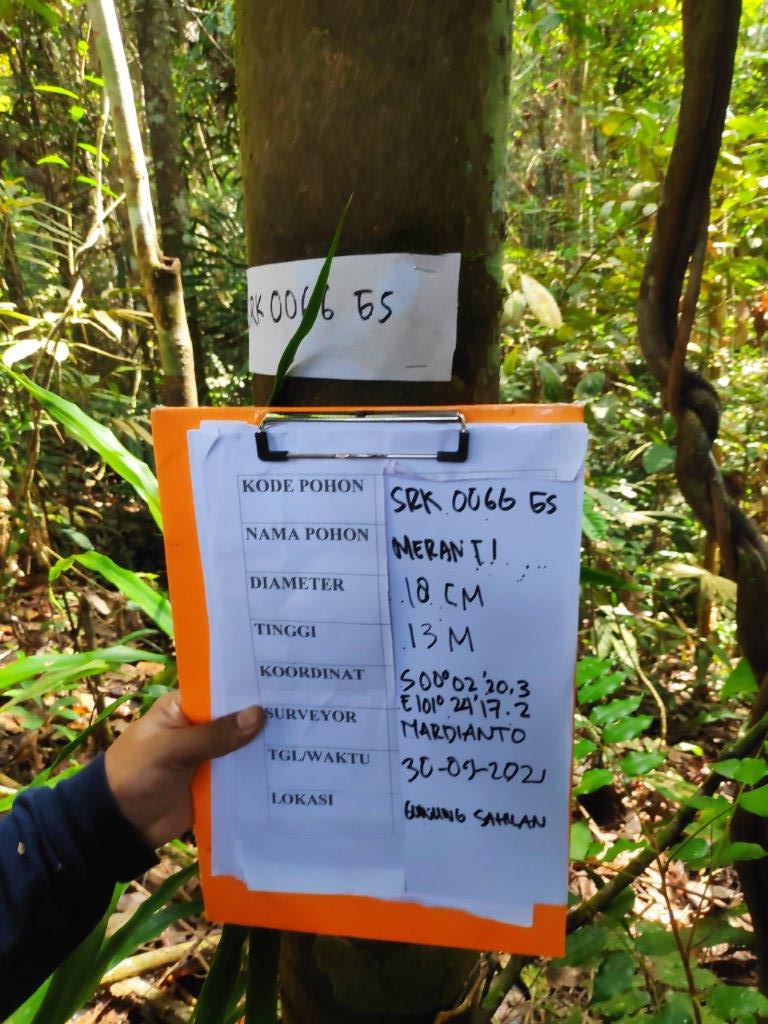 SRK 0066 ES
KODE POHON SRK 0066 ES
NAMA POHON MERANTI
DIAMETER 18 CM
TINGGI 13 M
KOORDINAT S 00° 02' 20.3
E 101° 24' 17.2
SURVEYOR MARDIANTO
TGL/WAKTU 30-09-2021
LOKASI GUNUNG SAHILAN